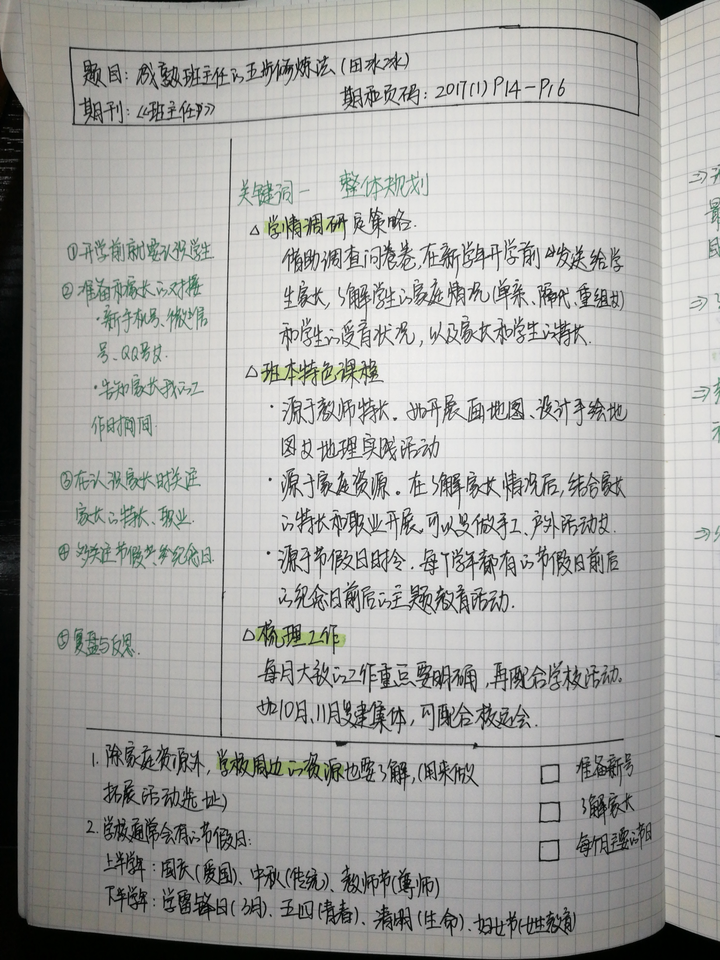 题目：成熟班主任的五步修炼法（田冰冰）
期刊：《班主任》
期和页码：2017(1) P14-P16
关键词一 整体规划
△学情调研定策略.
借助调查问卷卷，在新学年开学前发送给学
生家长，了解学生的家庭情况（单亲、隔代、重组等）
和学生的受育状况，以及家长和学生的特长.
△班本特色课程
·源于教师特长。如开展画地图、设计手绘地
图等地理实践活动
·源于家庭资源。在了解家长情况后，结合家长
的特长和职业开展，可以是做手工、户外活动等.
·源于节假日时令.每个学年都有的节假日前后
的纪念日前后的主题教育活动.
△梳理工作
每月大致的工作重点要明确，再配合学校活动。
如10月、11月是建集体，可配合校运会.
①开学前就要认识学生
②准备和家长的对接
·新手机号、微信
号、QQ号等.
·告知家长我的工
作日期间
③在认识家长时关注
家长的特长、职业.
④多关注节假日、纪念日.
⑤复盘与反思.
1. 除家庭资源外，学校周边的资源也要了解，（用来做
拓展活动选址）
2. 学校通常会有的节假日：
上半学年：国庆（爱国）、中秋（传统）、教师节（尊师）
下半学年：学雷锋日（3月）、五四（青春）、清明（生命）、妇女节（女性教育）
□ 准备新号
□ 了解家长
□ 每个月主要的节日